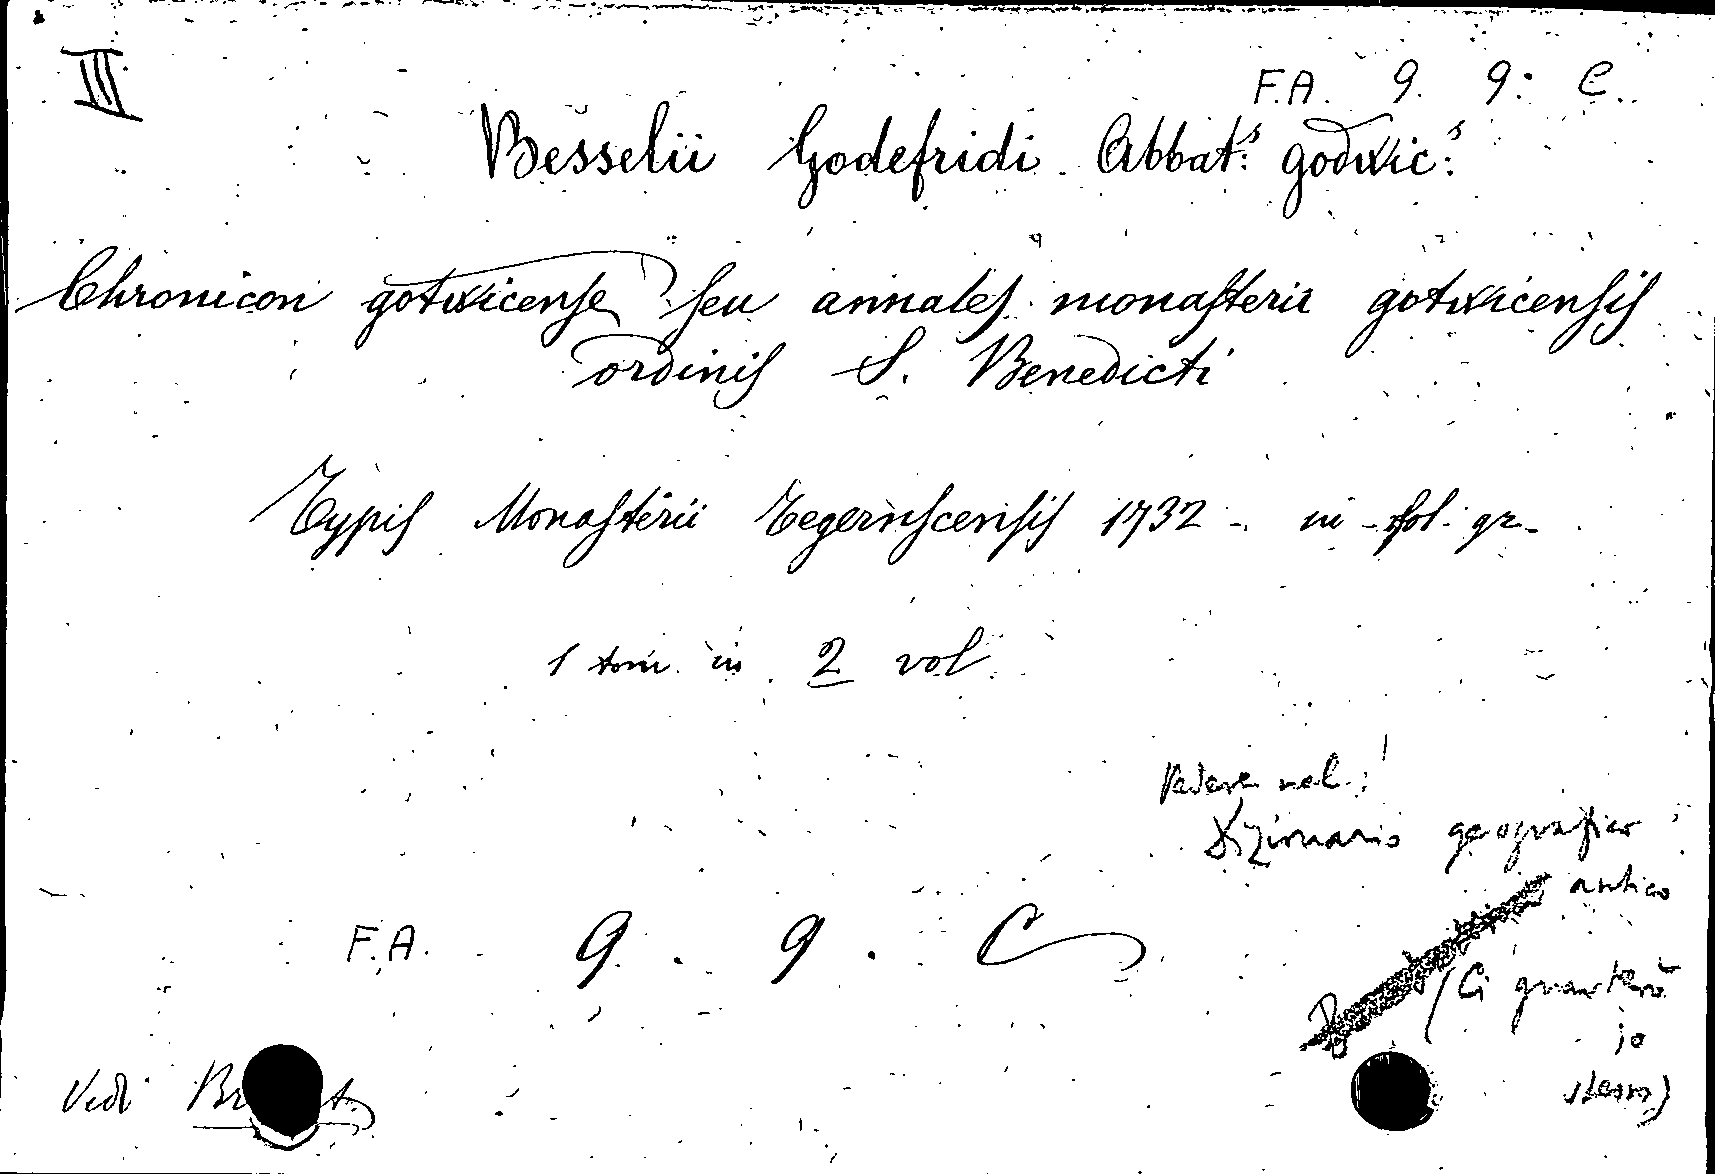 III
F.A. 9. 9. C.
Besselii Godefridi Abbat:s godwic:s
Chronicon gotwicense seu annales monasterii gotwicensis
ordinis S. Benedicti
Typis Monasterii Tegernscensis 1732 - in-fol. gr.
1 tom. in 2 vol.
Vedere nel:
Dizionario geografico
antico
F.A. 9. 9. C
(Ci guarderò
io
stesso)
Vedi